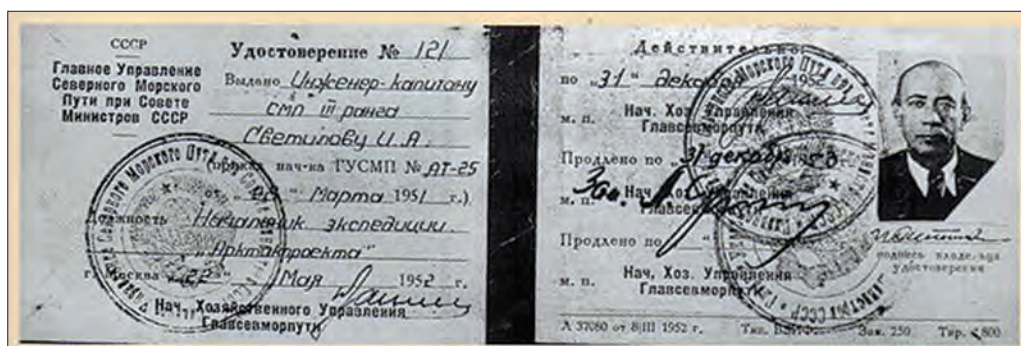 СССР
Главное Управление
Северного Морского
Пути при Совете
Министров СССР
Удостоверение № 121
Выдано Инженер-капитану
СМП III ранга
Светилову И.А.
(приказ нач-ка ГУСМП № АТ-25
Марта 1951 г.)
Должность Начальник экспедиции
"Арктикпроекта"
г. Москва "22" Мая 1952 г.
Нач. Хозяйственного Управления
Главсевморпути
Действительно
по "31" декабря 195
м. п. Нач. Хоз. Управления
Главсевморпути
Продлено по "31" декабря 1953
м. п. Зам. Нач. Хоз. Управления
Главсевморпути
Продлено по " "
м. п. Нач. Хоз. Управления
Главсевморпути
подпись владельца
удостоверения
Л 37080 от 8/III 1952 г. Тип. Зак. 250 Тир. 800